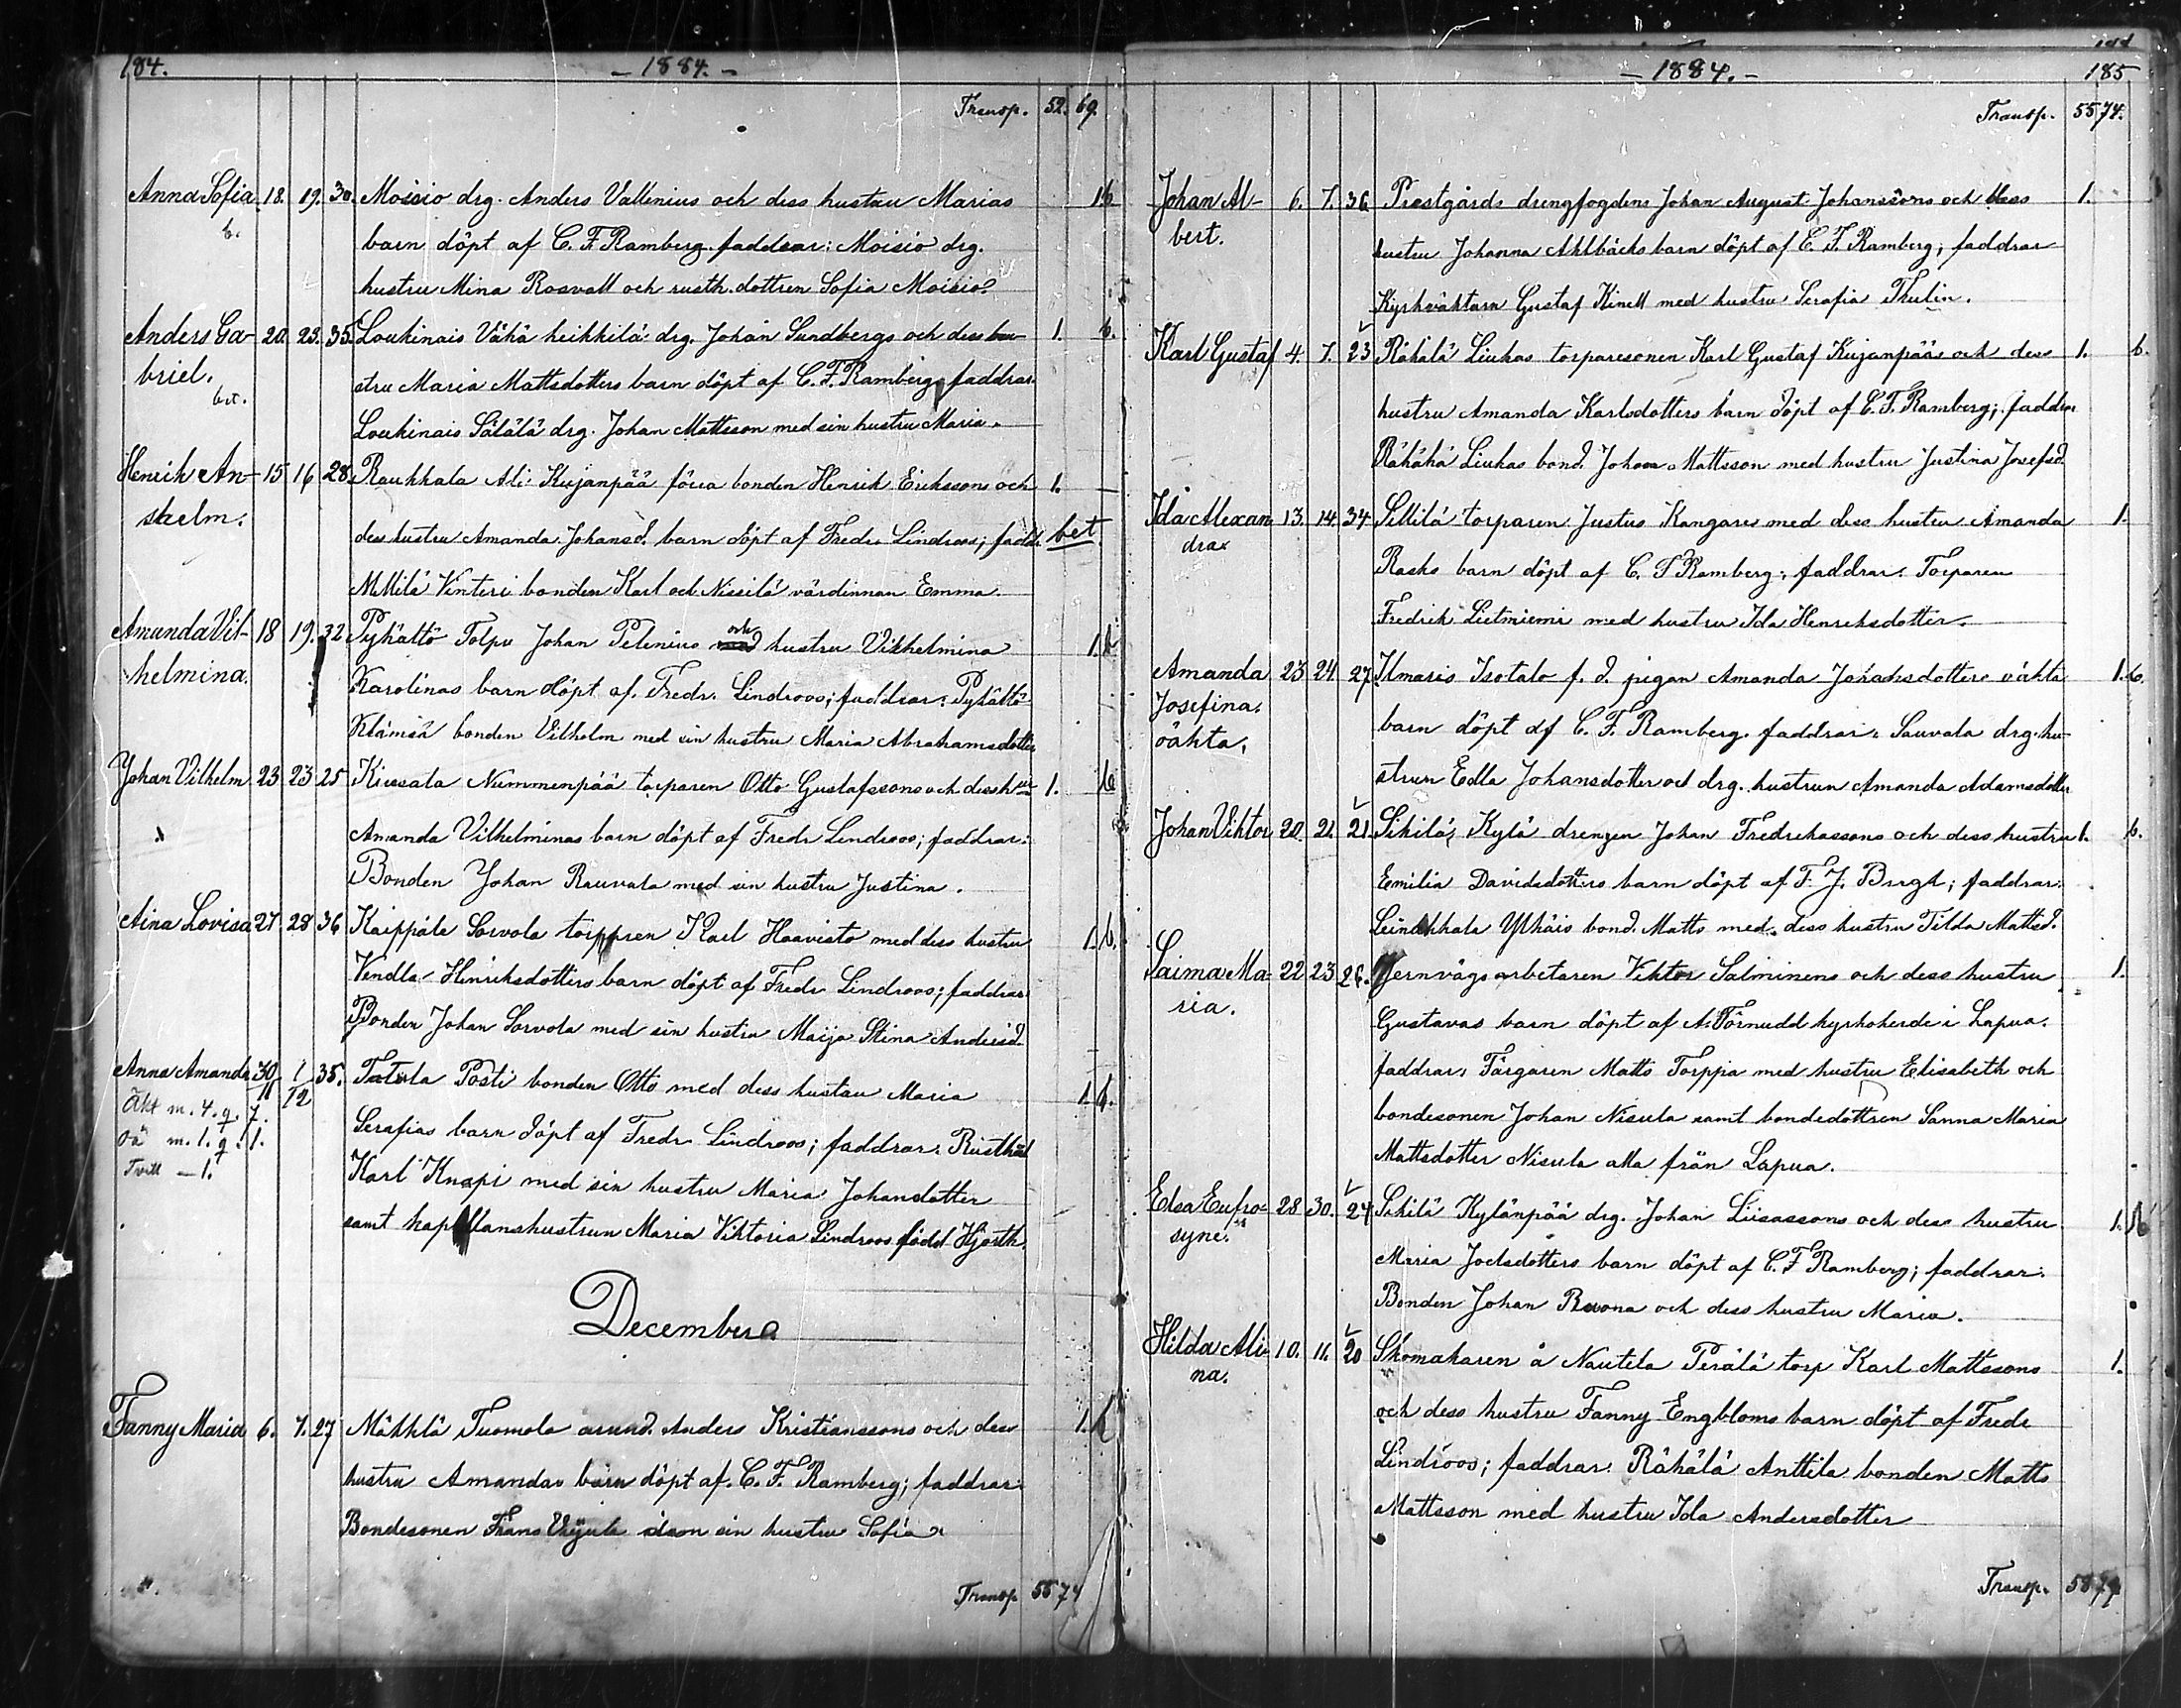 184.
- 1884. -
Transp. 52. 69.
Anna Sofia 18. 19. 30. Moisio drg. Anders Vallenius och dess hustru Marias 1 b
b. barn döpt af C. F. Ramberg. faddrar: Moisio drg.
hustru Mina Rosvall och rusth. dottren Sofia Moisio.
Anders Ga- 20. 23. 35. Loukinais Vähä heikkilä drg. Johan Sundbergs och dess hu- 1. b.
briel. stru Maria Mattsdotters barn döpt af C. F. Ramberg; faddrar
bet. Loukinais Sälälä drg. Johan Mattsson med sin hustru Maria.
Henrik An- 15 16 28. Raukkala Ali Kujanpää förra bonden Henrik Erikssons och 1. —
shelm. dess hustru Amanda Johansd. barn döpt af Fredr. Lindroos; fadd. bet.
Mllilä Venteri bonden Karl och Nissilä värdinnan Emma.
Amanda Vil- 18 19. 32 Pyhältö Tolpo Johan Petenius och hustru Vilhelmina 1. b
helmina. Karolinas barn döpt af Fredr. Lindroos; faddrar: Pyhältö
Klämsä bonden Vilhelm med sin hustru Maria Abrahamsdotter
Johan Vilhelm 23 23 25 Kiusala Nummenpää torparen Otto Gustafssons och dess hu 1. b
Amanda Vilhelminas barn döpt af Fredr Lindroos; faddrar:
Bonden Johan Rauvala med sin hustru Justina.
Aina Lovisa 27. 28 36 Kaippala Sorvola torparen Karl Haavisto med dess hustru 1. b.
Vendla Henriksdotters barn döpt af Fredr Lindroos; faddrar:
Bonden Johan Sorvola med sin hustru Maija Stina Andersd.
Anna Amanda 30/11 1/12 35. Tatula Posti bonden Otto med dess hustru Maria 1. b.
Äkt m. 4. q. 7. Serafias barn döpt af Fredr Lindroos; faddrar: Rusthål
Oä m. 1. q. 1. Karl Knapi med sin hustru Maria Johansdotter
Tvill — 1. samt kapellanshustrun Maria Viktoria Lindroos född Hjorth.
December
Fanny Maria 6. 7. 27 Mäkklä Tuomola arend. Anders Kristianssons och dess 1. b
hustru Amandas barn döpt af C. F. Ramberg; faddrar:
Bondesonen Frans sin hustru Sofia
Transp. 55 74
- 1884. -
185
Transp. 55 74.
Johan Al- 6. 7. 36 Prestgårds drengfogdens Johan August Johanssons och dess 1.
bert. hustru Johanna Ahlbäcks barn döpt af C. F. Ramberg; faddrar
Kyrkväktarn Gustaf Kinell med hustru Serafia Thulin.
Karl Gustaf 4. 7. 23 Rähälä Liukas torparesonen Karl Gustaf Kujanpääs och dess 1. b.
hustru Amanda Karlsdotters barn döpt af C. F. Ramberg; faddrar
Rähälä Liukas bond. Johan Mattsson med hustru Justina Josefsd.
Ida Alexan- 13. 14. 34 Sillilä torparen Justus Kangares med dess hustru Amanda 1.
dra Rasks barn döpt af C. F. Ramberg; faddrar: Torparen
Fredrik Lietniemi med hustru Ida Henriksdotter.
Amanda 23 24 27. Ilmaris Isotalo f. d. pigan Amanda Johansdotters oäkta 1. b.
Josefina. barn döpt af C. F. Ramberg. faddrar: Sauvala drg. hu-
oäkta. strun Edla Johansdotter och drg. hustrun Amanda Adamsdotter
Johan Viktor 20. 21. 21. Sikilä, Kylä drengen Johan Fredrikssons och dess hustru 1. b.
Emilia Davidsdotters barn döpt af F. J. Bergh; faddrar:
Leinakkala Ylhäis bond. Matts med dess hustru Tilda Mattsd.
Saima Ma- 22 23 26. Jernvägs arbetaren Viktor Salminens och dess hustru 1.
ria. Gustavas barn döpt af A. Törnudd kyrkoherde i Lapua.
faddrar: Färgaren Matts Torppa med hustru Elisabeth och
bondesonen Johan Nisula samt bondedottren Sanna Maria
Mattsdotter Nisula alla från Lapua.
Elsa Eufro- 28 30. 24 Sikilä Kylänpää drg. Johan Liisassons och dess hustru 1. b
syne. Maria Joelsdotters barn döpt af C. F. Ramberg; faddrar:
Bonden Johan Ravona och dess hustru Maria.
Hilda Ali- 10. 11. 20 Skomakaren å Nautela Perälä torp Karl Mattssons 1.
na. och dess hustru Fanny Engbloms barn döpt af Fredr
Lindroos; faddrar: Rähälä Anttila bonden Matts
Mattsson med hustru Ida Andersdotter
Transp. 58 79